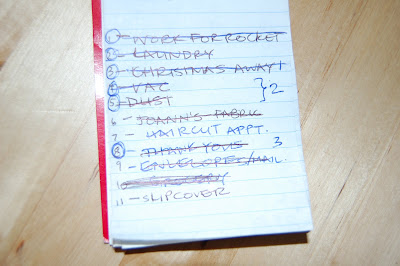 1 - WORK FOR ROCKET
2 - LAUNDRY
3 - CHRISTMAS AWAY!
4 - VAC
5 - DUST } 2
6 - JOANN'S FABRIC
7 - HAIRCUT APPT.
8 - THANK YOUS 3
9 - ENVELOPES/MAIL.
10 -
11 - SLIPCOVER